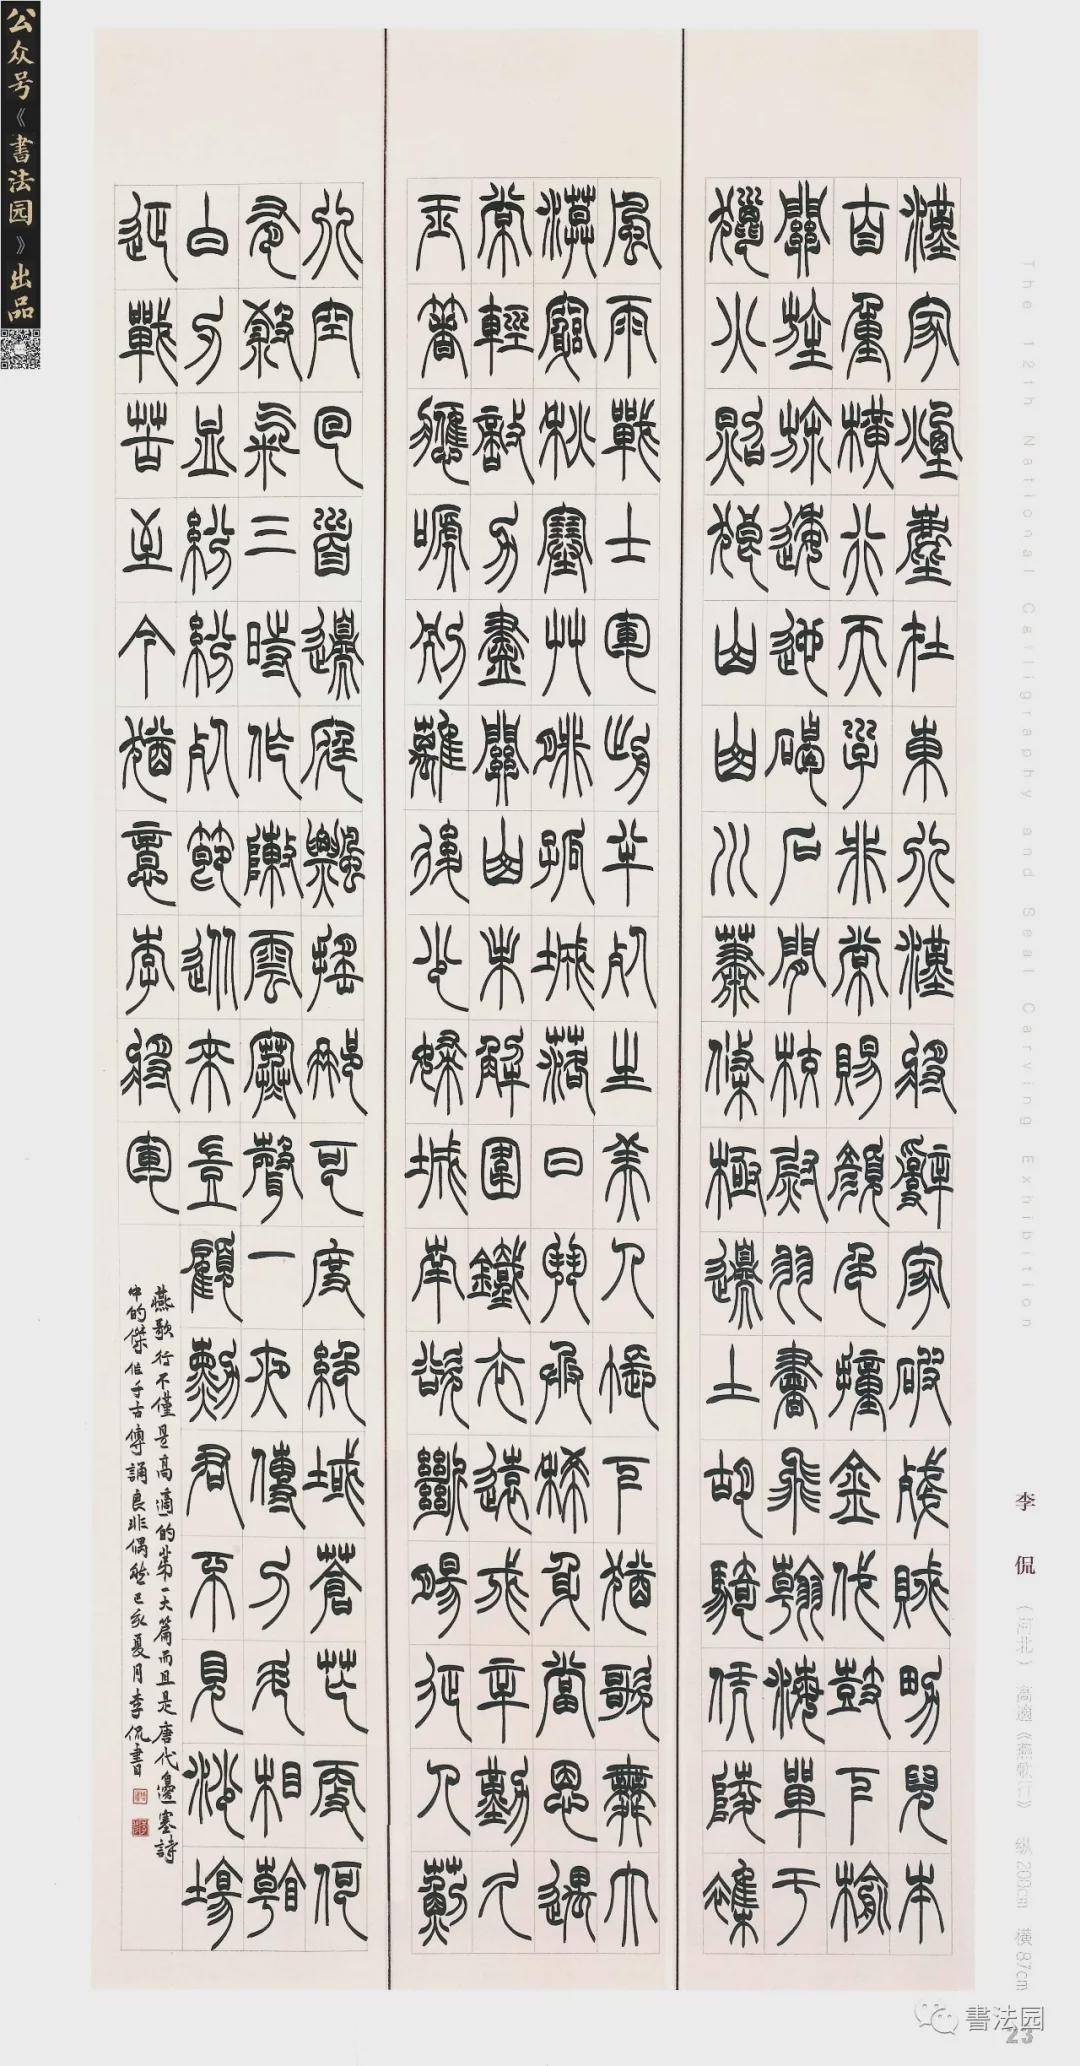 公众号《書法园》出品
漢家煙塵在東北漢將辭家破殘賊男兒本
自重橫行天子非常賜顏色摐金伐鼓下榆
關旌旆逶迤碣石間校尉羽書飛瀚海單于
獵火照狼山山川蕭條極邊土胡騎憑陵雜
風雨戰士軍前半死生美人帳下猶歌舞大
漠窮秋塞草腓孤城落日鬥兵稀身當恩遇
常輕敵力盡關山未解圍鐵衣遠戍辛勤久
玉箸應啼別離後少婦城南欲斷腸征人薊
北空回首邊庭飄颻那可度絕域蒼茫更何
有殺氣三時作陣雲寒聲一夜傳刁斗相看
白刃血紛紛死節從來豈顧勳君不見沙場
征戰苦至今猶憶李將軍
燕歌行不僅是高適的第一大篇而且是唐代邊塞詩
中的傑作千古傳誦良非偶然己亥夏月李侃書
The 12th National Calligraphy and Seal Carving Exhibition
李侃（河北）高適《燕歌行》 纵200cm 横87cm
書法园
23